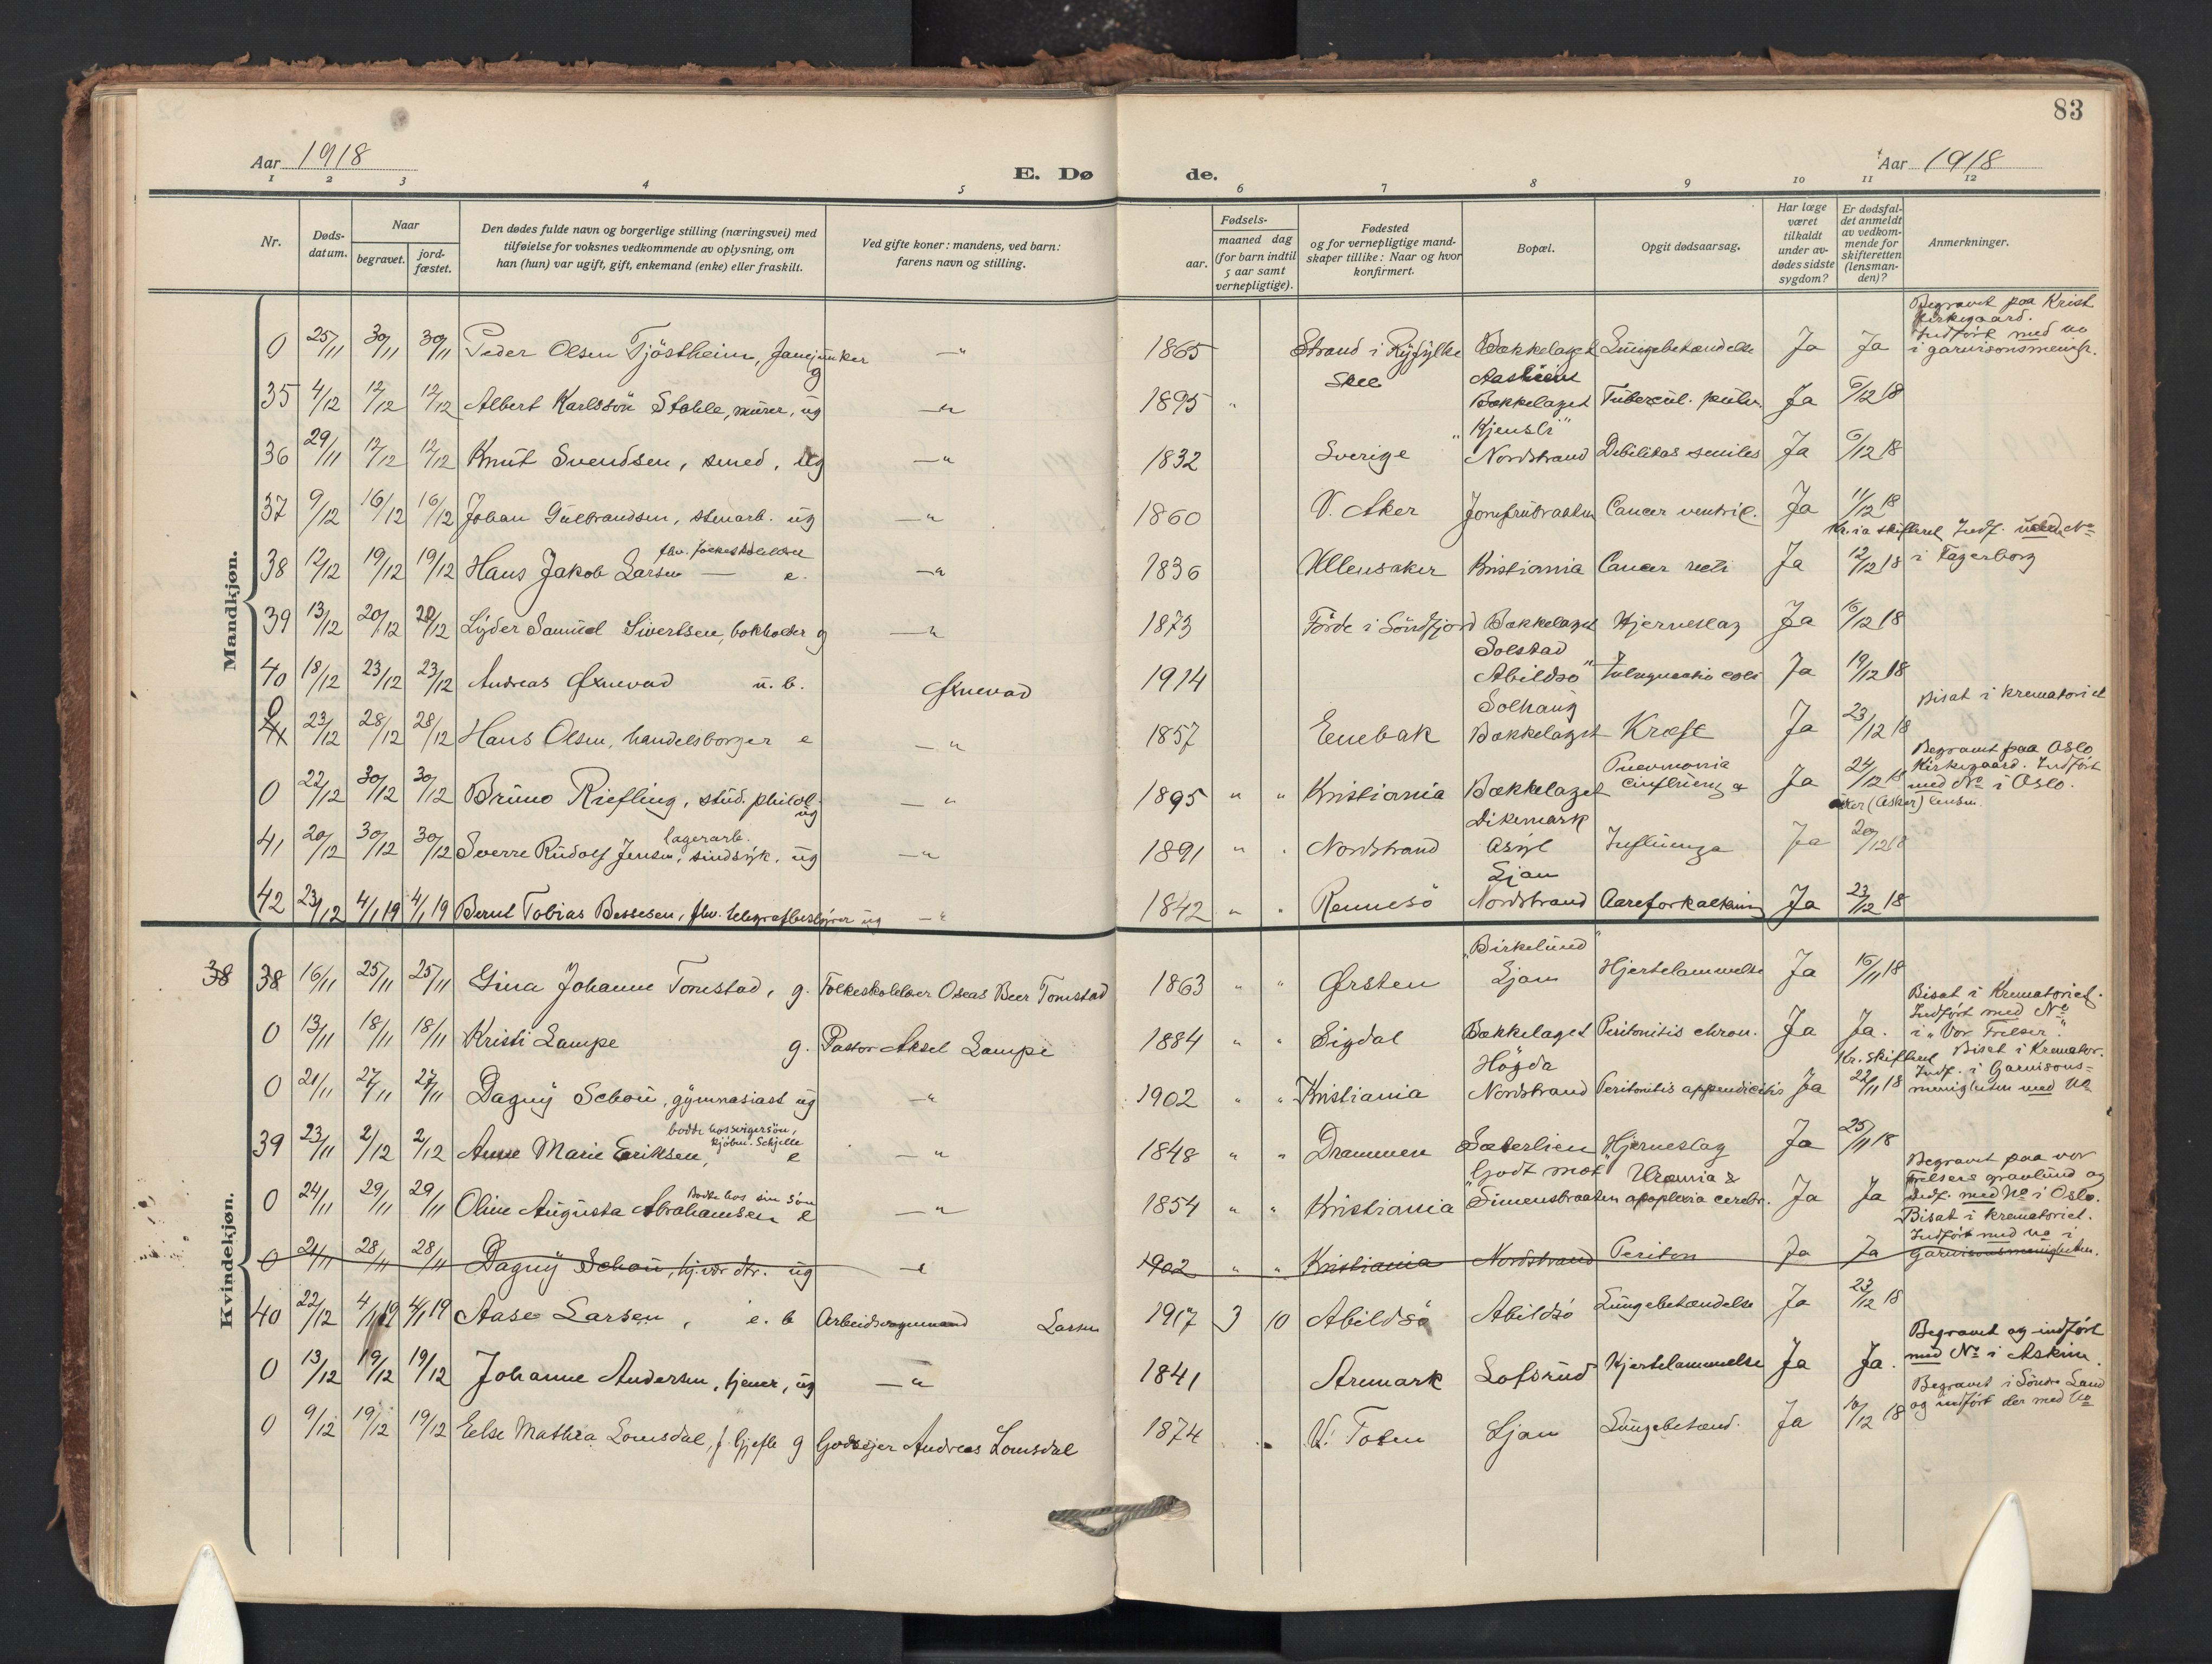 83
Aar 1918
E. Dø de.
Aar 1918
1 2 3 4 5 6 7 8 9 10 11 12
Nr.
Døds-datum.
Naar
begravet.
jord-fæstet.
Den dødes fulde navn og borgerlige stilling (næringsvei) med
tilføielse for voksnes vedkommende av oplysning, om
han (hun) var ugift, gift, enkemand (enke) eller fraskilt.
Ved gifte koner: mandens, ved barn:
farens navn og stilling.
Fødsels-
aar.
maaned dag
(for barn indtil
5 aar samt
vernepligtige).
Fødested
og for vernepligtige mand-
skaper tillike: Naar og hvor
konfirmert.
Bopæl.
Opgit dødsaarsag.
Har læge
været
tilkaldt
under av-
dødes sidste
sygdom?
Er dødsfal-
det anmeldt
av vedkom-
mende for
skifteretten
(lensman-
den)?
Anmerkninger.
Mandkjøn.
0 25/11 30/11 30/11 Peder Olsen Tjöstheim, g —"— 1865 Strand i Ryfylke Bækkelaget Lungebetændelse Ja Ja Begravet paa Krist Kirkegaard. Indført med No i garnisonsmenigh.
35 4/12 12/12 12/12 Albert Karlsson Stohle, murer, ug —"— 1895 " Skee Bækkelaget Tubercul. pulm. Ja 6/12 18
36 29/11 12/12 12/12 Knut Svendsen, smed, ug —"— 1832 Sverige "Kjensli" Nordstrand Debilitas senilis Ja 6/12 18
37 9/12 16/12 16/12 Johan Gulbrandsen, stenarb. ug —"— 1860 V. Aker Jomfrubraaten Cancer ventric. Ja 11/12 18
38 12/12 19/12 19/12 Hans Jakob Larsen — fhv. folkeskolelærer e. —"— 1836 Ullensaker Kristiania Cancer recti Ja Kr.ia skifteret 12/12 18 Indf. uden No i Fagerborg
39 13/12 20/12 20/12 Lyder Samuel Sivertsen, bokholder g —"— 1873 Förde i Söndfjord Bækkelaget Hjerneslag Ja 16/12 18
40 18/12 23/12 23/12 Andreas Øxnevad u. b. Øxnevad 1914 Solstad Abildsö Ja 19/12 18
0 23/12 28/12 28/12 Hans Olsen, handelsborger e —"— 1857 Enebak Solhaug Bækkelaget Kræft Ja 23/12 18 Bisat i krematoriet
0 22/12 30/12 30/12 Bruno Riefling, stud. philol. ug —"— 1895 " " Kristiania Bækkelaget Pneumonia Ja 24/12 18 Begravet paa Oslo Kirkegaard. Indført med No i Oslo.
41 20/12 30/12 30/12 Sverre Rudolf Jensen, lagerarb. sindsyk. ug —"— 1891 " " Nordstrand Dikemark Asyl Influenza Ja (Asker) lensm. 20/12 18
42 23/12 4/1 19 4/1 19 Bernt Tobias Bessesen, fhv. telegrafbestyrer ug —"— 1842 " " Rennesö Ljan Nordstrand Aareforkalkning Ja 23/12 18
Kvindekjøn.
38 38 16/11 25/11 25/11 Gina Johanne Tomstad, g. Folkeskolelærer Oseas Beer Tomstad 1863 " " Ørsten "Birkelund" Ljan Hjertelammelse Ja 16/11 18
0 13/11 18/11 18/11 Kristi Lampe g. Pastor Aksel Lampe 1884 " " Sigdal Bækkelaget Peritonitis chron. Ja Ja. Bisat i Krematoriet. Indført med No i "Vor Frelser".
0 21/11 27/11 27/11 Dagny Schou, gymnasiast ug —"— 1902 " " Kristiania Högda Nordstrand Peritonitis appendicitis Ja Kr. Skifteret 22/11 18 Bisat i Kremator. Indf. i Garnisons=menigheten med No
39 23/11 2/12 2/12 Anne Marie Eriksen, bodde hos svigersön, kjöbm. Schjelle e —"— 1848 " " Drammen Sæterlien Hjerneslag Ja 25/11 18
0 24/11 29/11 29/11 Oline Augusta Abrahamsen Bodde hos sin sön e —"— 1854 " " Kristiania "Godt mot" Simensbraaten Uræmia & apoplexia cerebr. Ja Ja Begravet paa vor Frelsers gravlund og Indf. med No i Oslo.
0 21/11 28/11 28/11 Dagny Schou, hj.vær. dtr. ug —"— 1902 " " Kristiania Nordstrand Periton Ja Ja Bisat i krematoriet. Indført med No i garnisonsmenigheten.
40 22/12 4/1 19 4/1 19 Aase Larsen, e. b Arbeidsformand Larsen 1917 3 10 Abildsö Abildsö Lungebetændelse Ja 23/12 18
0 13/12 19/12 19/12 Johanne Andersen, tjener, ug —"— 1841 Aremark Lofsrud Hjertelammelse Ja Ja. Begravet og indført med No i Askim.
0 9/12 19/12 19/12 Else Mathea Lomsdal, f. Gjefle g Godsejer Andreas Lomsdal 1874 V. Toten Ljan Lungebetænd. Ja 10/12 18 Begravet i Söndre Land og indført der med No